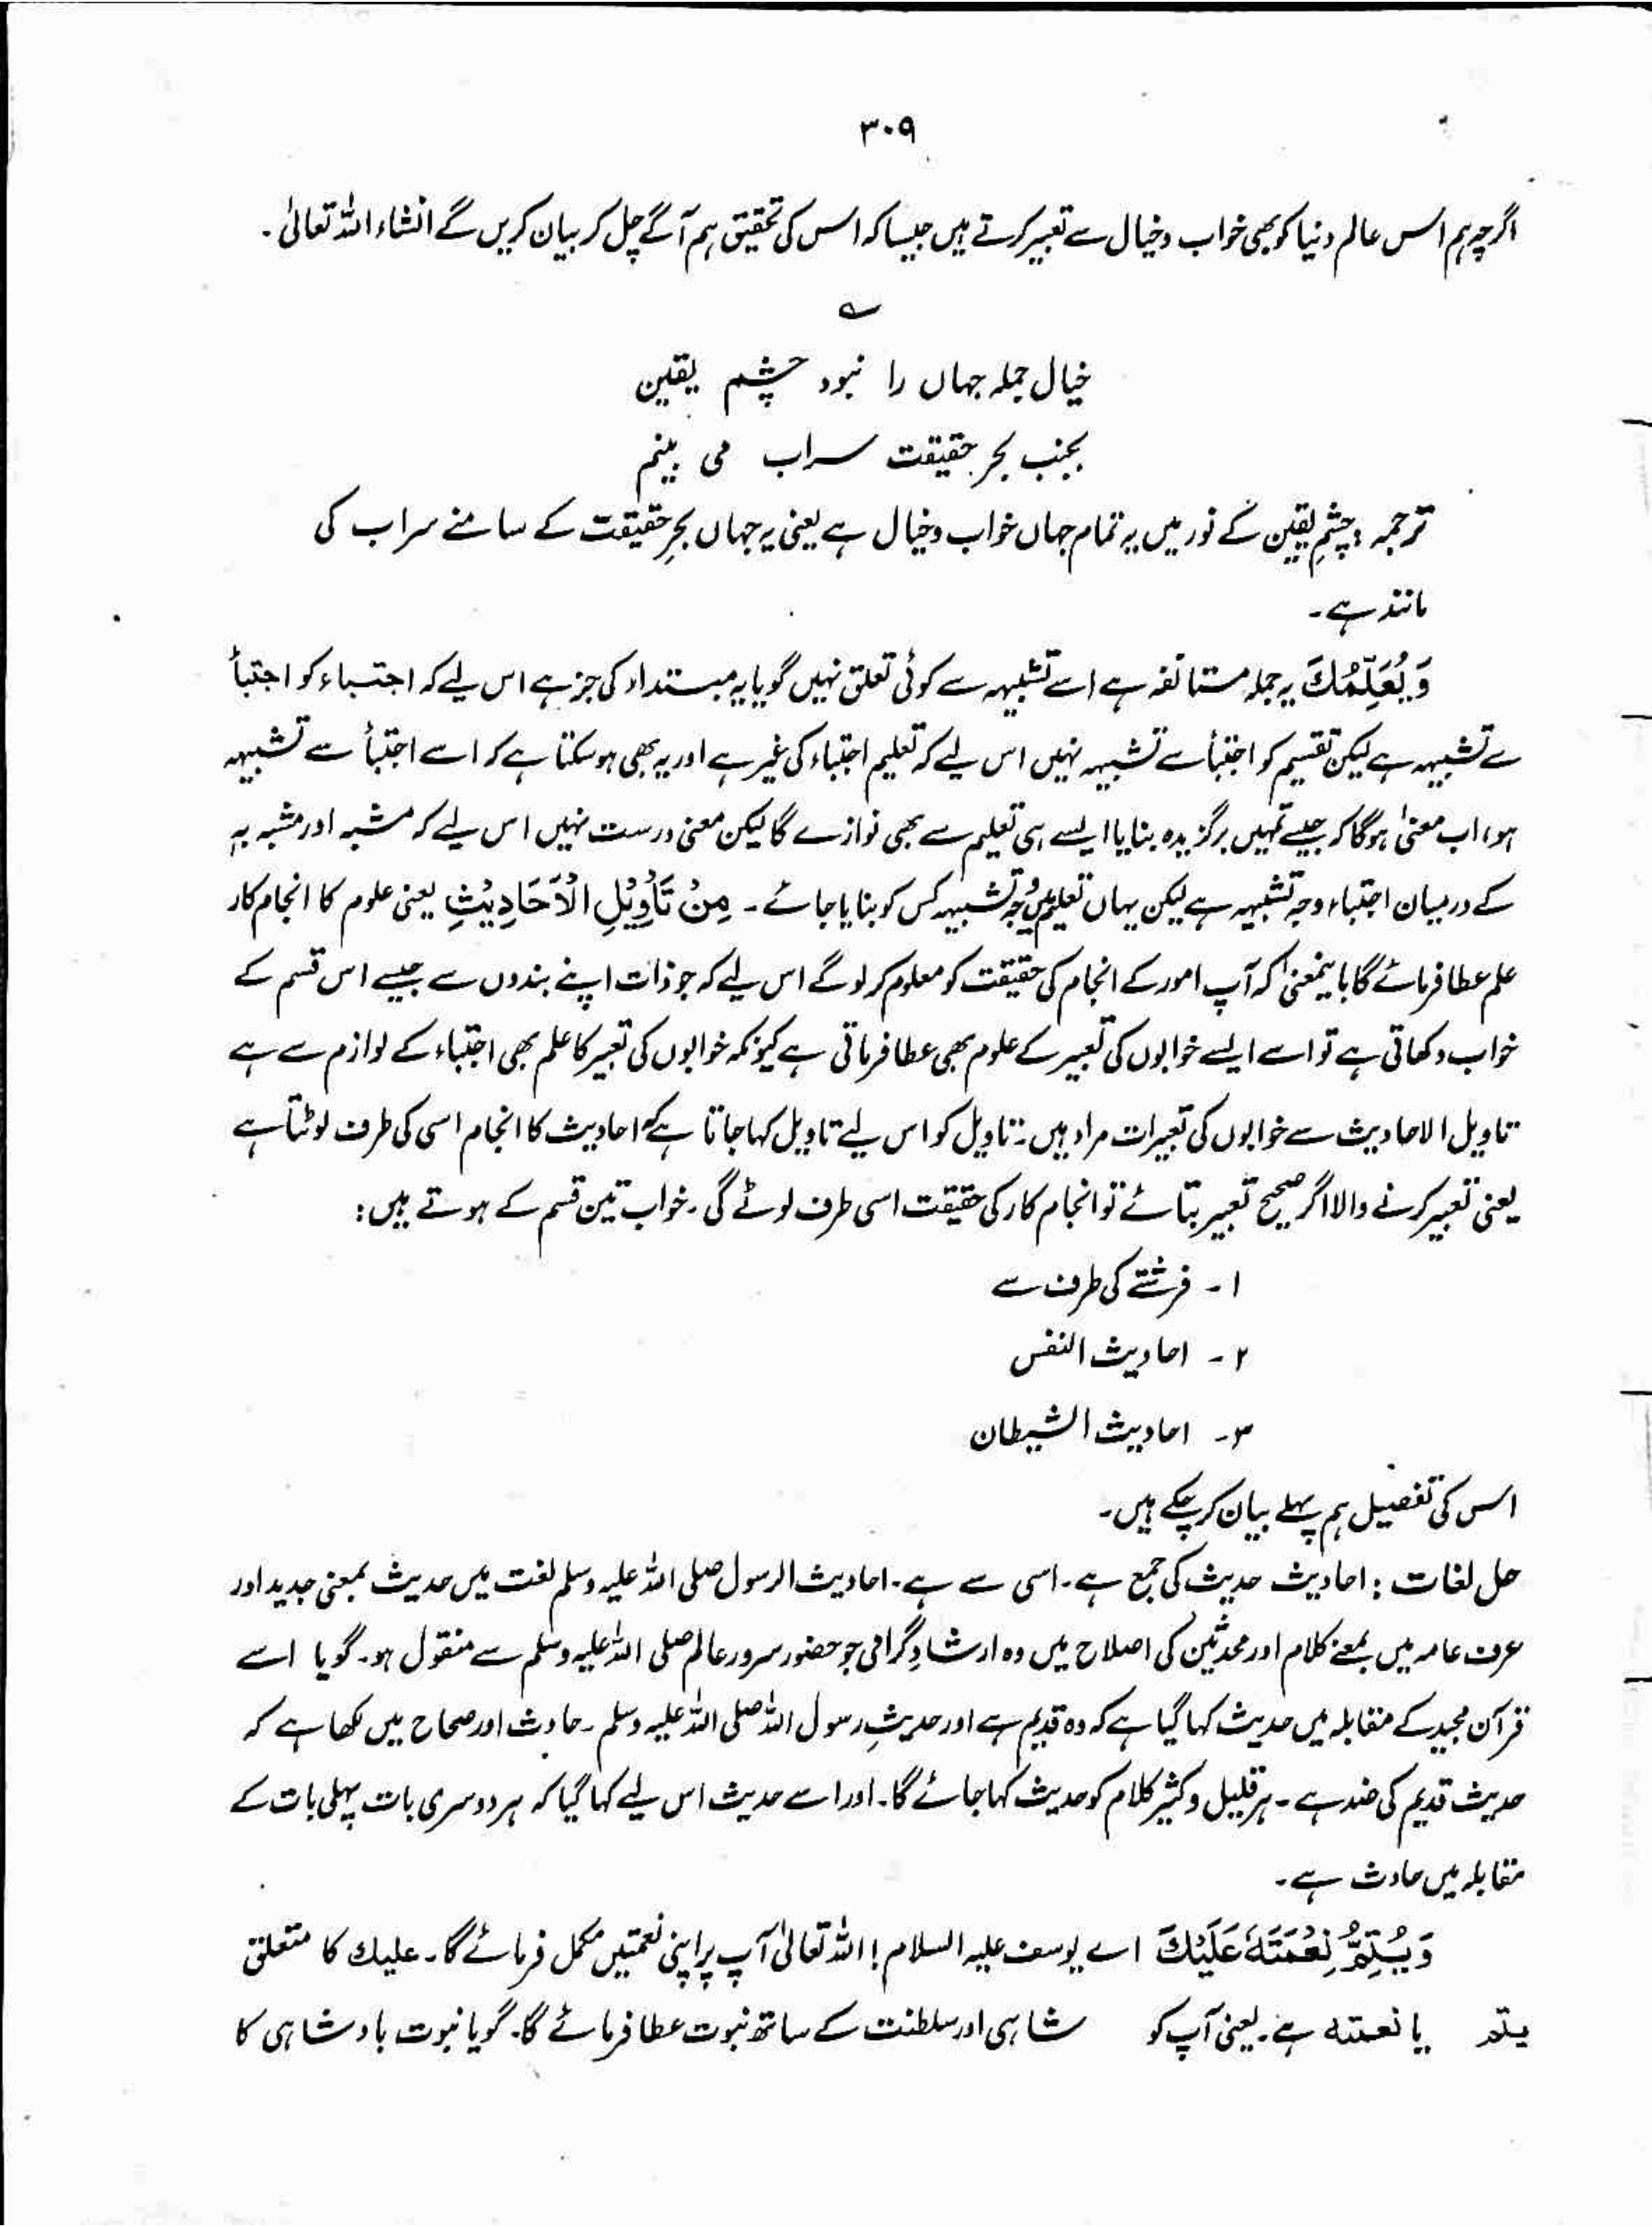 ۳۰۹
اگرچہ ہم اس عالم دنیا کو بھی خواب و خیال سے تعبیر کرتے ہیں جیسا کہ اس کی تحقیق ہم آگے چل کر بیان کریں گے انشاء اللہ تعالیٰ۔
؎
خیال جملہ جہاں را نبود چشم یقین
بجنب بحر حقیقت سراب می بینم
ترجمہ : چشمِ یقین کے نور میں یہ تمام جہاں خواب و خیال ہے یعنی یہ جہاں بحرِ حقیقت کے سامنے سراب کی
مانند ہے۔
وَيُعَلِّمُكَ یہ جملہ مستانفہ ہے اسے تشبیہہ سے کوئی تعلق نہیں گویا یہ مبتداء کی جز ہے اس لیے کہ اجتباء کو اجتبأ
سے تشبیہہ ہے لیکن تقسیم کو اجتبأ سے تشبیہہ نہیں اس لیے کہ تعلیم اجتباء کی غیر ہے اور یہ بھی ہو سکتا ہے کہ اسے اجتبأ سے تشبیہہ
ہو، اب معنیٰ ہو گا کہ جیسے تمہیں برگزیدہ بنایا ایسے ہی تعلیم سے بھی نوازے گا لیکن معنی درست نہیں اس لیے کہ مشبہ اور مشبہ بہ
کے درمیان اجتباء وجہ تشبیہہ ہے لیکن یہاں تعلیم میں وجہ تشبیہہ کس کو بنایا جائے۔ مِنْ تَأْوِيْلِ الْاَحَادِيْثِ یعنی علوم کا انجام کار
علم عطا فرمائے گا بایمعنیٰ کہ آپ امور کے انجام کی حقیقت کو معلوم کر لو گے اس لیے کہ جو ذات اپنے بندوں سے جیسے اس قسم کے
خواب دکھاتی ہے تو اسے ایسے خوابوں کی تعبیر کے علوم بھی عطا فرماتی ہے کیونکہ خوابوں کی تعبیر کا علم بھی اجتباء کے لوازم سے ہے
تاویل الاحادیث سے خوابوں کی تعبیرات مراد ہیں۔ تاویل کو اس لیے تاویل کہا جاتا ہے کہ احادیث کا انجام اسی کی طرف لوٹتا ہے
یعنی تعبیر کرنے والا اگر صحیح تعبیر بتائے تو انجام کار کی حقیقت اسی طرف لوٹے گی۔ خواب تین قسم کے ہوتے ہیں :
۱ - فرشتے کی طرف سے
۲ - احادیث النفس
۳ - احادیث الشیطان
اس کی تفصیل ہم پہلے بیان کر چکے ہیں۔
حل لغات : احادیث حدیث کی جمع ہے۔ اسی سے ہے۔ احادیث الرسول صلی اللہ علیہ وسلم لغت میں حدیث بمعنی جدید اور
عرف عامہ میں بمعنے کلام اور محدثین کی اصلاح میں وہ ارشادِ گرامی جو حضور سرور عالم صلی اللہ علیہ وسلم سے منقول ہو۔ گویا اسے
قرآن مجید کے مقابلہ میں حدیث کہا گیا ہے کہ وہ قدیم ہے اور حدیثِ رسول اللہ صلی اللہ علیہ وسلم ۔ حادث اور صحاح میں لکھا ہے کہ
حدیث قدیم کی ضد ہے ۔ ہر قلیل و کثیر کلام کو حدیث کہا جائے گا۔ اور اسے حدیث اس لیے کہا گیا کہ ہر دوسری بات پہلی بات کے
مقابلہ میں حادث ہے۔
وَيُتِمُّ نِعْمَتَهٗ عَلَيْكَ اے یوسف علیہ السلام ! اللہ تعالیٰ آپ پر اپنی نعمتیں مکمل فرمائے گا۔ علیك کا متعلق
یتم یا نعمتہ ہے۔ یعنی آپ کو شاہی اور سلطنت کے ساتھ نبوت عطا فرمائے گا۔ گویا نبوت بادشاہی کا